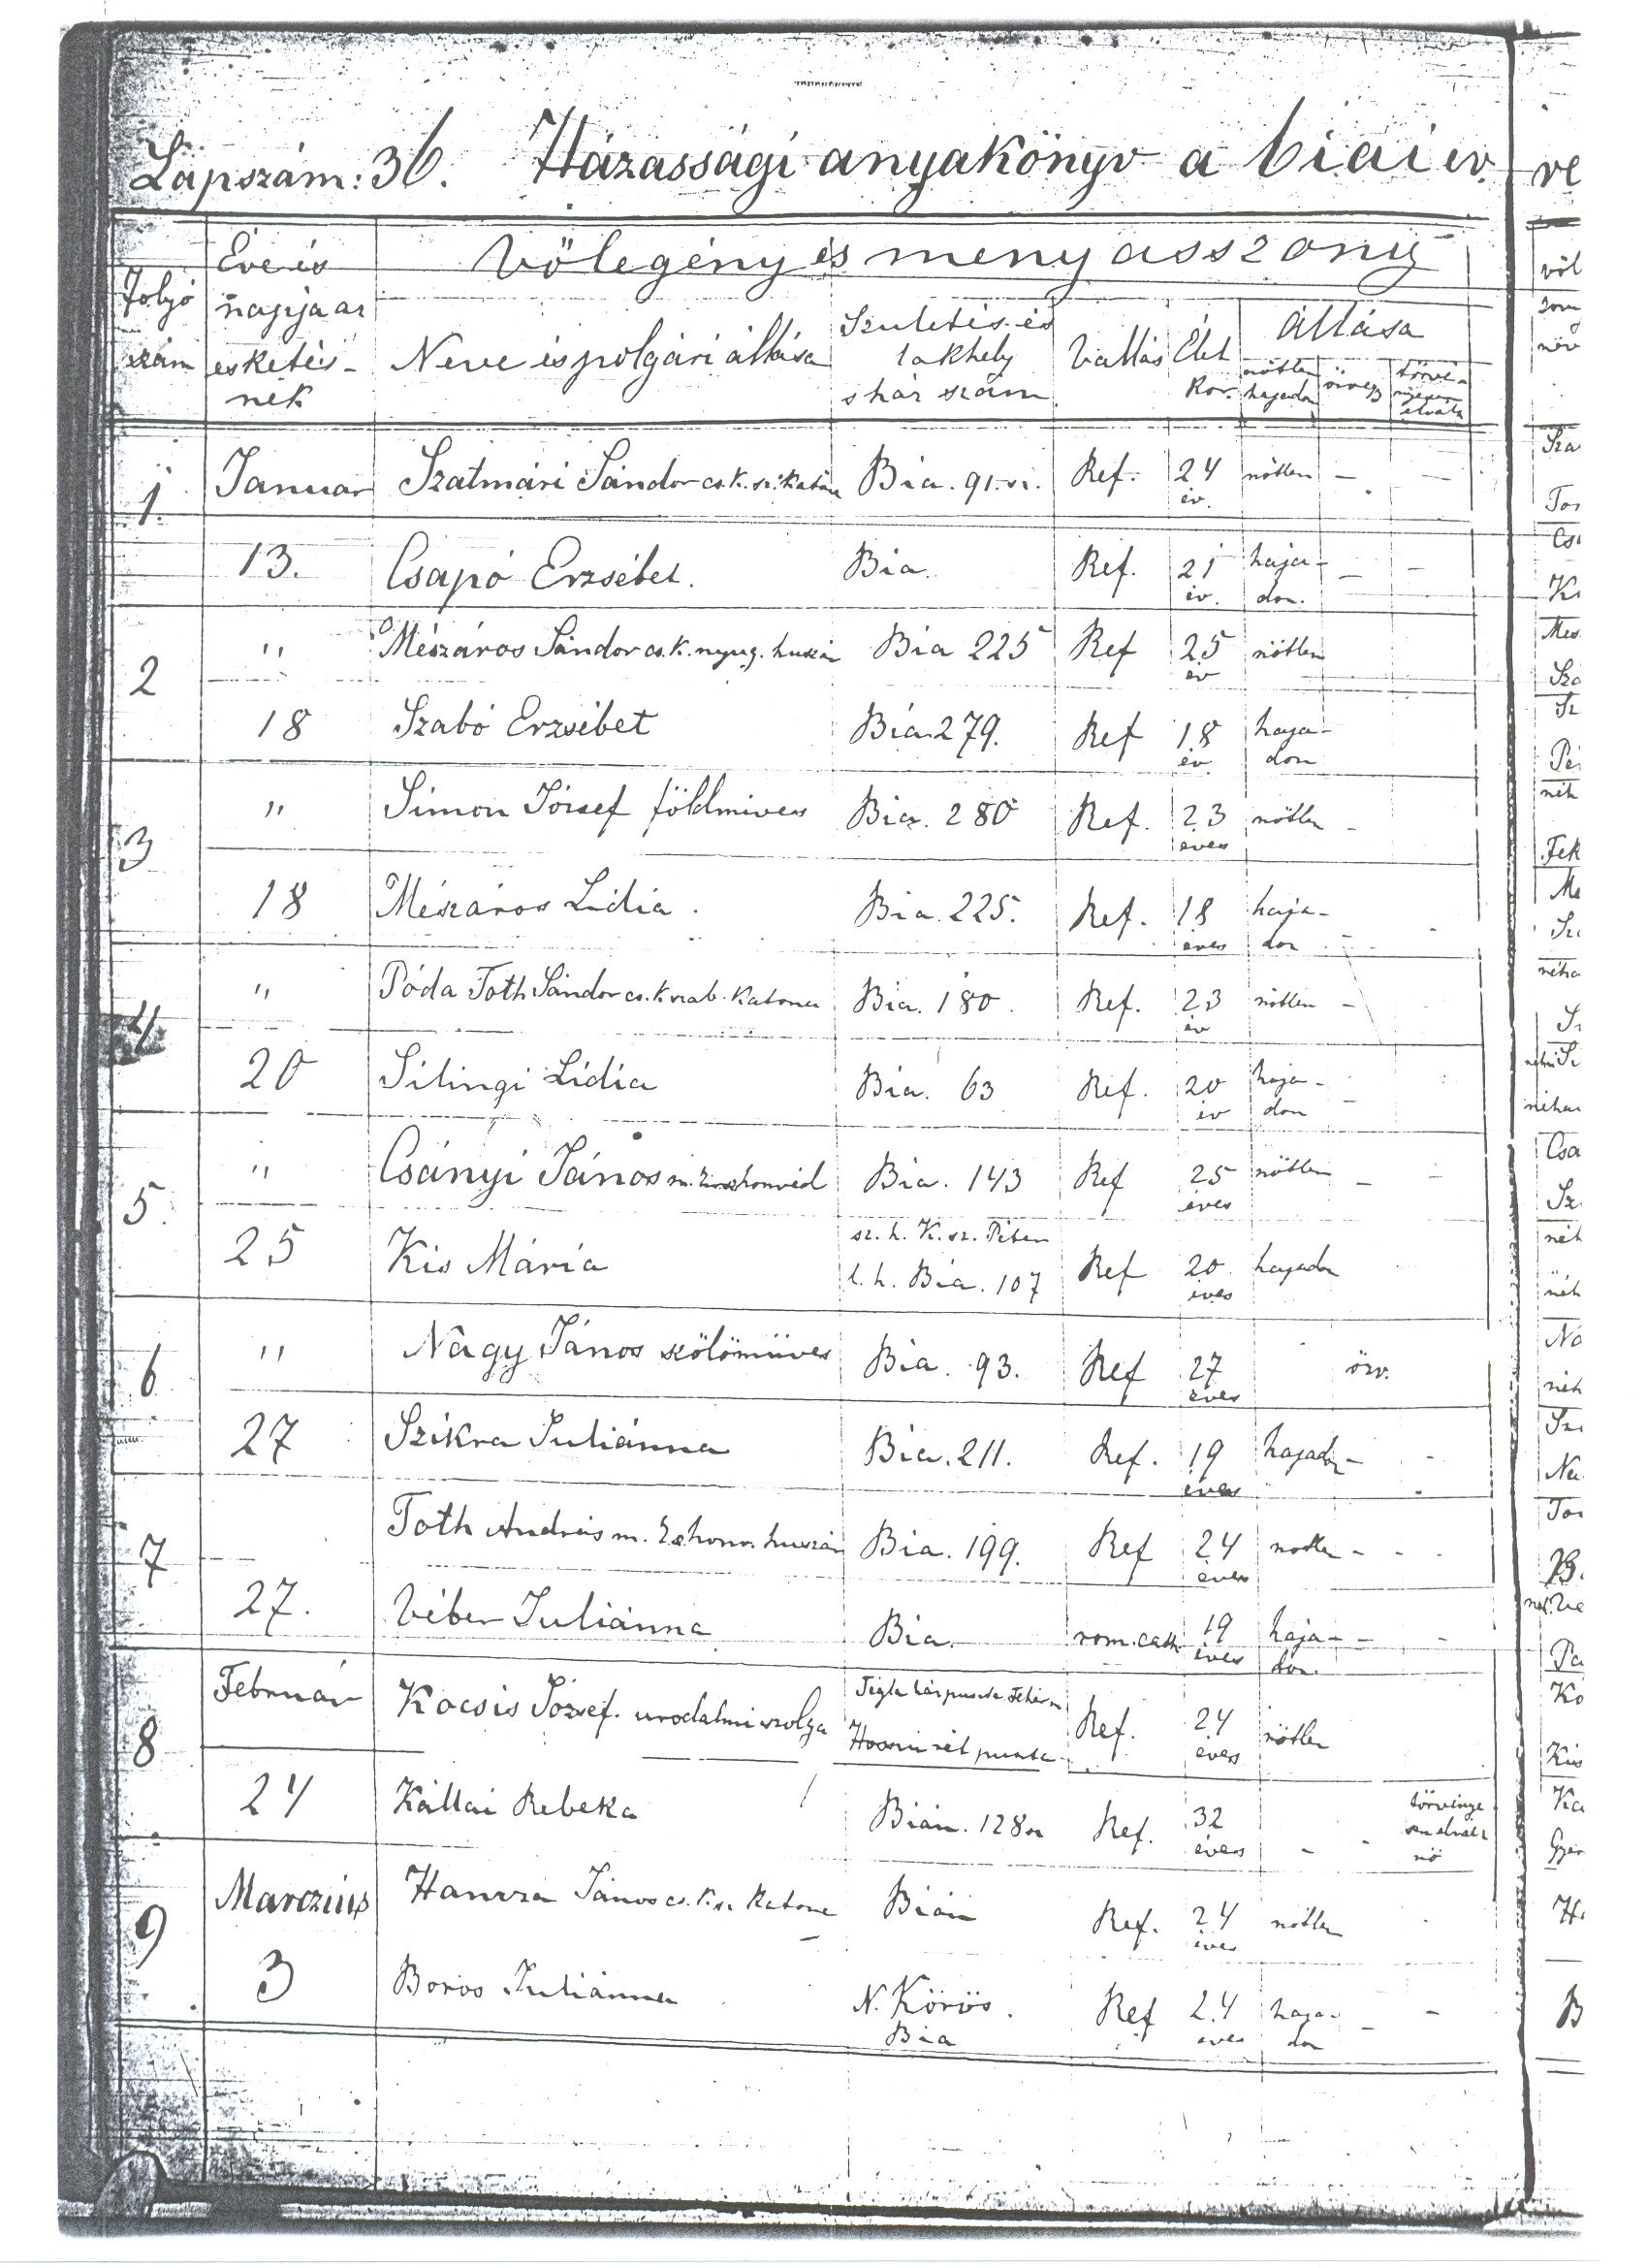 Lapszám: 36. Házassági anyakönyv a biai ev. ve
Folyó szám
Éve és napja az esketés-nek
Vőlegény és menyasszony
Neve és polgári állása
Születés és lakhely s ház szám
Vallás
Élet Kor.
Állása
nőtlen hajadon
özvegy
1. Januar Szatmári Sándor cs. k. sz. katona Bia. 91. sz. Ref. 24 év. nőtlen – –
13. Csapó Erzsébet. Bia. Ref. 21 év. haja-don. – –
2 " Mészáros Sándor cs. k. nyug. huszár Bia 225 Ref 25 év nőtlen
18 Szabó Erzsébet Bia 279. Ref 18 év haja-don
3 " Simon József földmives Bia. 280 Ref. 23 éves nőtlen –
18 Mészáros Lidia. Bia. 225. Ref. 18 éves haja-don – -
4 " Póda Toth Sándor cs. k. szab. katona Bia. 180. Ref. 23 év nőtlen –
20 Silingi Lidia Bia. 63 Ref. 20 év haja-don –
5. " Csányi János m. honvéd Bia. 143 Ref 25 éves nőtlen – –
25 Kis Mária sz. h. K. sz. Péter l. h. Bia. 107 Ref 20 éves hajadon
6 " Nagy János szőlőmüves Bia. 93. Ref 27 éves özv.
27 Szikra Juliánna Bia. 211. Ref. 19 éves hajadon – -
7 Toth András m. huszár Bia. 199. Ref 24 éves nőtlen – - -
27. Véber Juliánna Bia. rom. cath. 19 éves haja-don. – –
8 Február Kocsis József. urodalmi szolga puszta Ref. 24 éves nőtlen
24 Kállai Rebeka Bián. 128 sz Ref. 32 éves – - törvénye sen elvált nő
9 Marczius János cs. k. sz. katona Bián Ref. 24 éves nőtlen
3 Boros Juliánna N. Körös. Bia Ref 24 éves haja-don – –